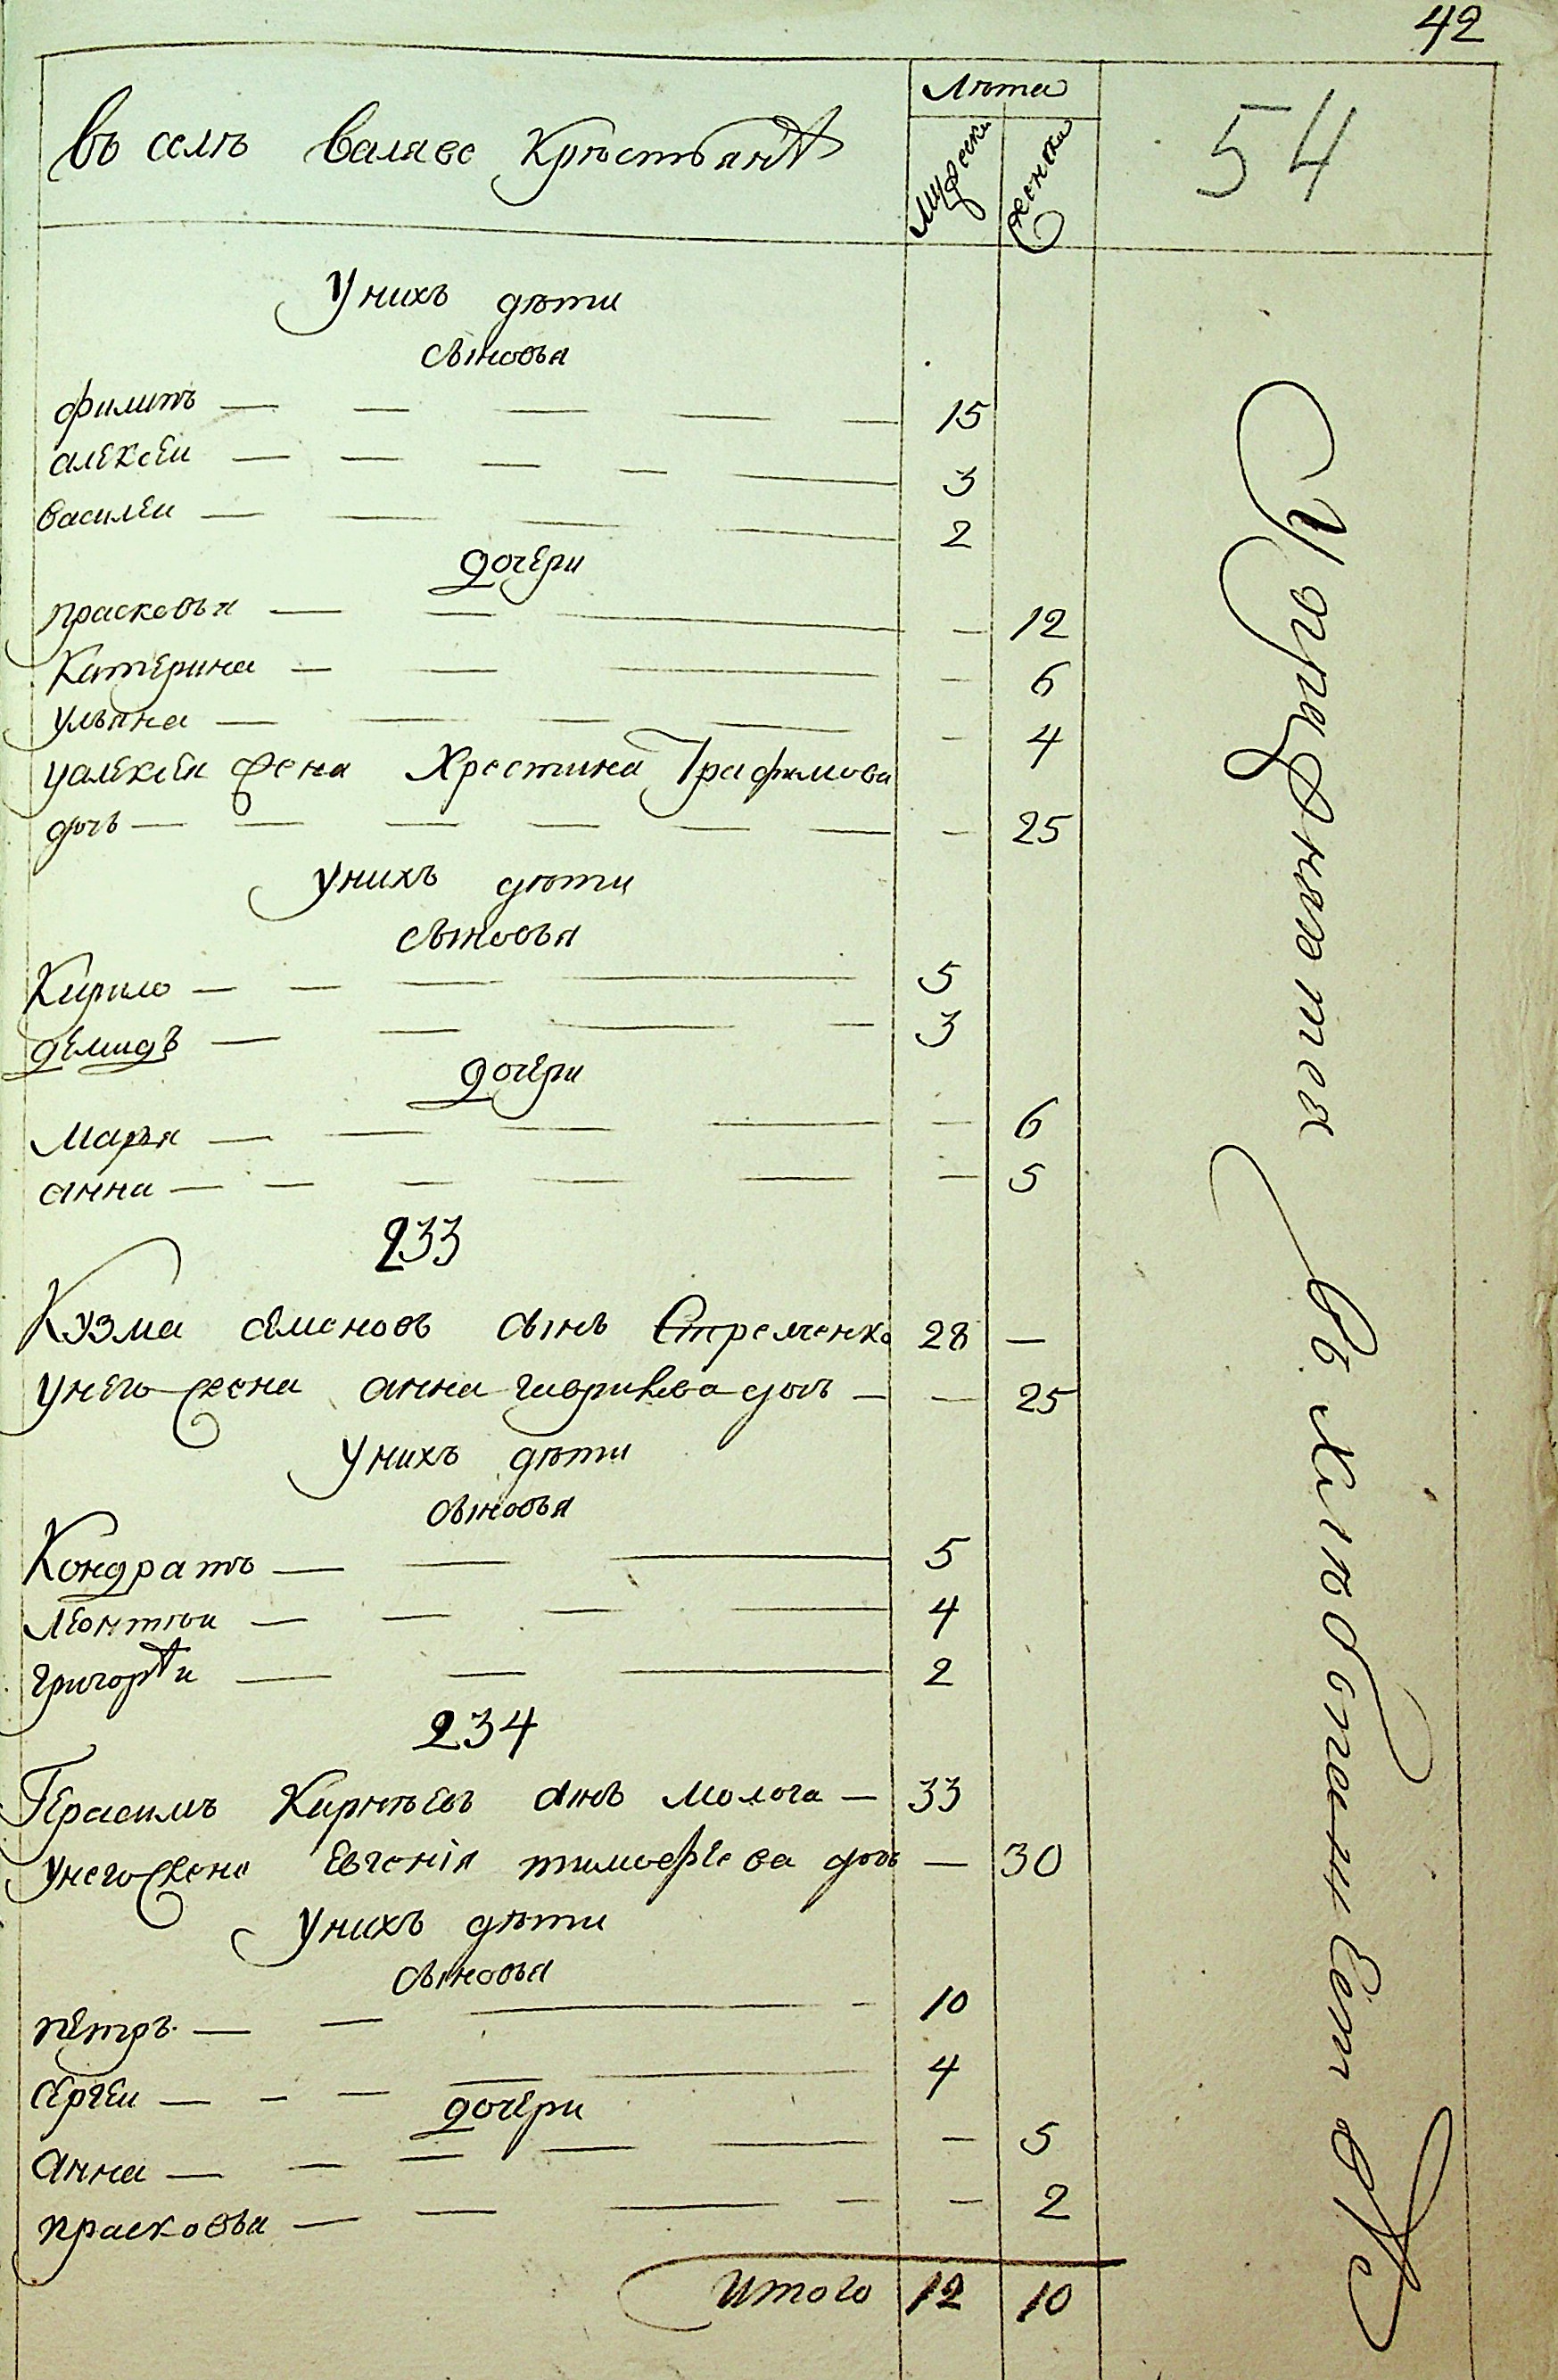 42
54
въ селѣ валяве крѣстьянъ
Лѣта
мужески
женски
У нихъ дѣти
сыновья
филипъ — 15
алексеи — 3
василеи — 2
дочери
прасковья — 12
Катерина — 6
ульяна — 4
у алексея жена Хрестина Трафимова
дочь — 25
У нихъ дѣти
сыновья
Кирило — 5
демидъ — 3
дочери
Марья — 6
анна — 5
233
Кузма семеновъ сынъ Стреленко 28 —
у него жена анна гаврилова дочь — 25
У нихъ дѣти
сыновья
Кондратъ — 5
леонтѣи — 4
григорѣи — 2
234
Герасимъ Кирѣевъ сынъ молога — 33
у него жена Евгенія тимофѣева дочь — 30
У нихъ дѣти
сыновья
петръ — 10
сергеи — 4
дочери
анна — 5
прасковья — 2
итого 12 10